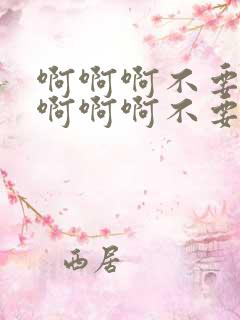 啊啊啊不要
啊啊啊不要
西居